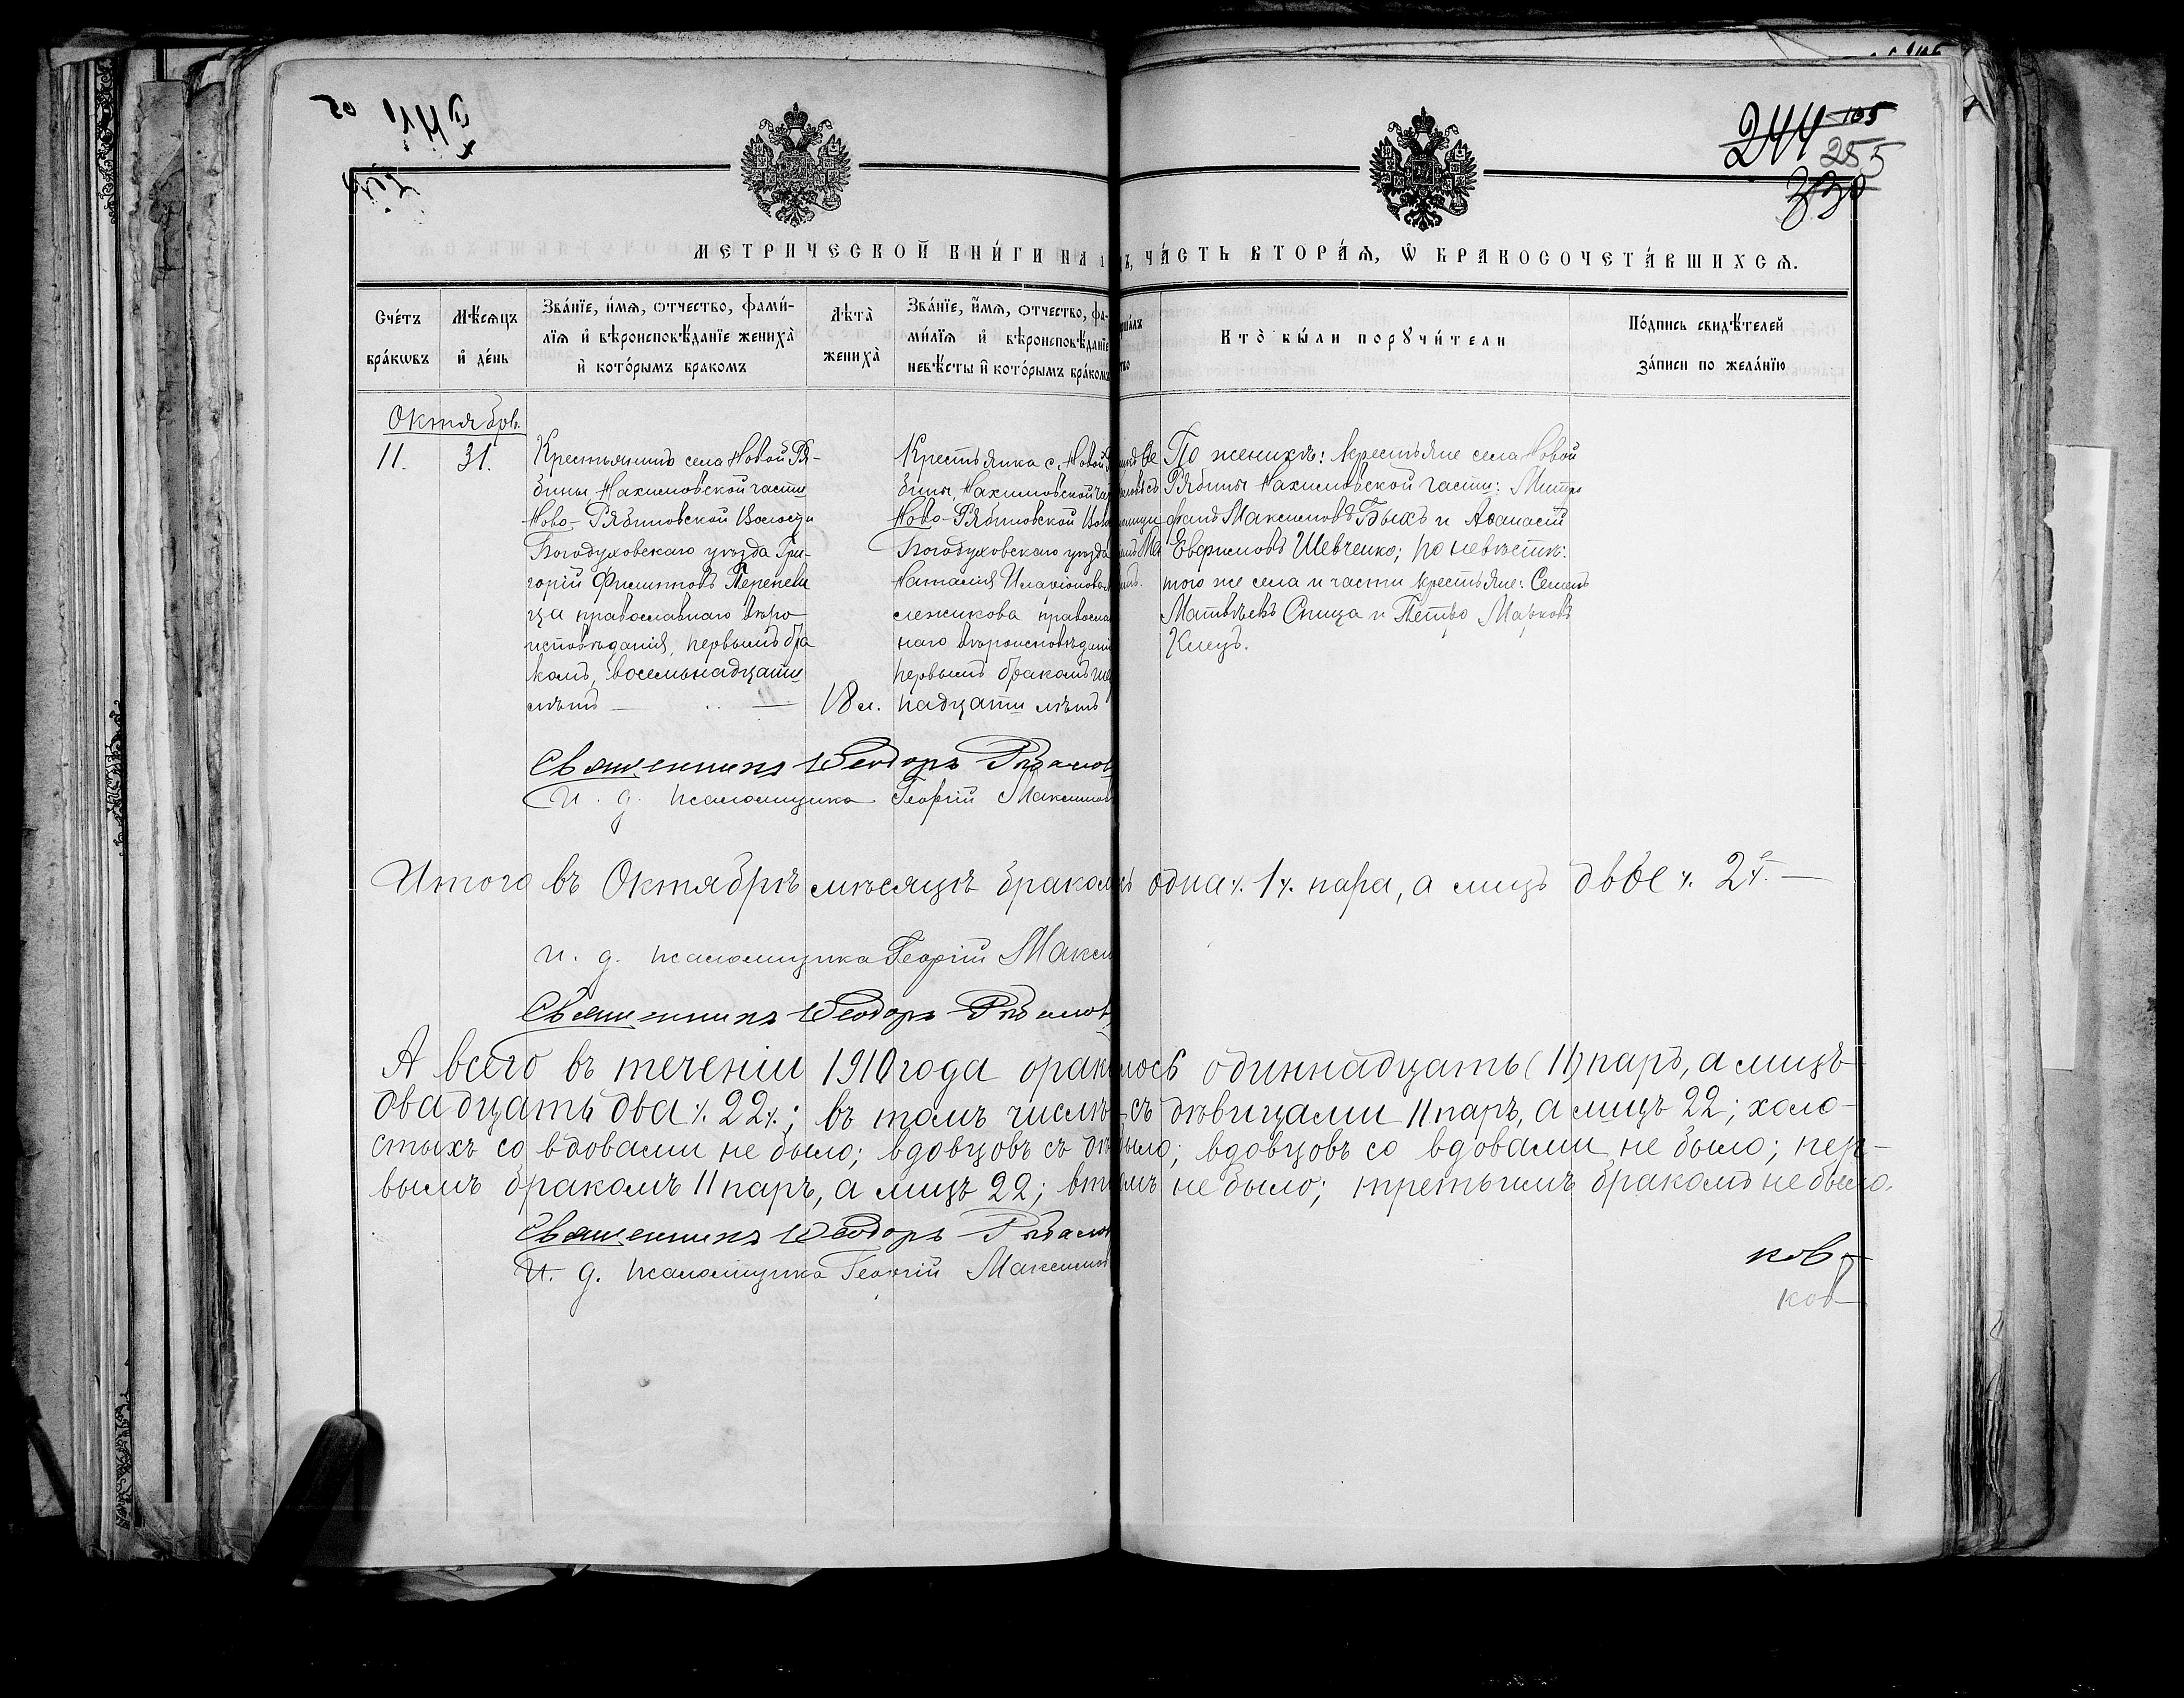 244 105
255
330
МЕТРИЧЕСКОЙ КНИ́ГИ НА
ЧА́СТЬ ВТОРА́Ѧ, Ѡ҆ БРАКОСОЧЕТА́ВШИХСѦ.
Сче́тъ бра́кѡвъ
Мѣ́сѧцъ и҆ де́нь
Зва́нїе, и҆́мѧ, ѻтчество, фами́-
лїѧ и҆ вѣроисповѣ́данїе жениха̀
и҆ кото́рымъ бракомъ
Лѣта̀ жениха̀
Зва́нїе, и҆́мѧ, ѻтчество, фа-
ми́лїѧ и҆ вѣроисповѣ́данїе
невѣ́сты и҆ кото́рымъ бра́комъ
Кто̀ бы́ли порꙋчи́тели
По́дпись свидѣ́телей
за́писи по жела́нїю
Октябрь.
11. 31.
Крестьянинъ села Новой Ря-
бины, Нахимовской части
Ново-Рябиновской Волости
Богодуховскаго уѣзда Гри-
горій Филипповъ Перепели
ца православнаго вѣро-
исповѣданія, первымъ бра
комъ, восемьнадцати
лѣтъ —
18 л.
Крестьянка с. Новой
бины, Нахимовской
Ново-Рябиновской
Богодуховскаго уѣзда
Наталія
православ
наго вѣроисповѣданія
первымъ бракомъ
надцати лѣтъ
По женихѣ: крестьяне села Новой
Рябины Нахимовской части: Митро
фанъ Максимовъ Быкъ и Аѳанасій
Евфимовъ Шевченко; по невѣстѣ:
того же села и части крестьяне: Семенъ
Матвѣевъ Спица и Петръ Марковъ
Священникъ Ѳеодоръ
И. д. псаломщика Георгій Максимов
Итого въ Октябрѣ мѣсяцѣ браком
одна ч. 1 ч. пара, а лицъ двое ч. 2 ч. —
и. д. псаломщика Георгій Макси
Священникъ Ѳеодоръ
А всего въ теченіи 1910 года
лось одиннадцать (11) паръ, а лицъ
двадцать два ч. 22 ч.; въ томъ числѣ
съ дѣвицами 11 паръ, а лицъ 22; холо-
стыхъ со вдовами не было; вдовцовъ съ дѣ
было; вдовцовъ со вдовами не было; пер-
вымъ бракомъ 11 паръ, а лицъ 22; вто
не было; третьимъ бракомъ не было.
Священникъ Ѳеодоръ
ковъ
И. д. псаломщика Георгій Максимов
ков